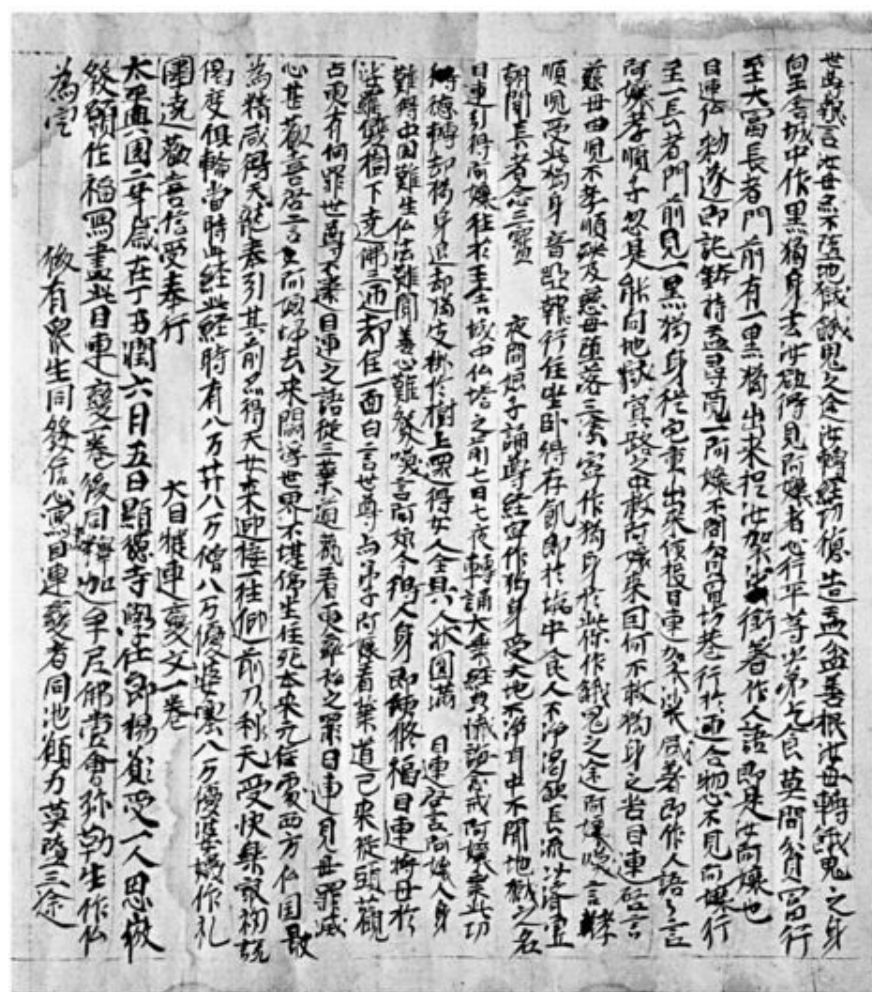 世尊報言汝母亦不墮地獄餓鬼之途汝轉經功德造盂盆善根汝母轉餓鬼之身
向王舍城中作黑狗身去汝欲得見阿孃者心行平等次第乞食莫問貧富行
至大富長者門前有一黑狗出來捉汝加沙銜著作人語即是汝阿孃也
目連仏勅遂即託鉢持盂尋覓阿孃不問貧富坊巷行於迊合惣不見阿孃行
至一長者門前見一黑狗身從宅裏出來便捉目連加沙銜著即作人語々言
阿孃孝順子忽是能向地獄冥路之中救阿孃來因何不救狗身之苦目連啓言
慈母由兒不孝順殃及慈母墮落三塗寧作狗身於此你作餓鬼之途阿孃喚言孝
順兒受此狗身音啞報行住坐臥得存飢即於坑中食人不淨渴飲長流以濟虛
朝聞長者念三寶 夜聞娘子誦尊經寧作狗身受大地不淨耳中不聞地獄之名
目連引得阿孃往於王舍城中仏塔之前七日七夜轉誦大乘經典懺誨念戒阿孃乘此功
德轉却狗身退却狗皮掛於樹上還得女人全具人狀圓滿 目連啓言阿孃人身
難得中國難生仏法難聞善心難發喚言阿孃今得人身即便修福目連將母於
娑羅雙樹下遶佛三迊却住一面白言世尊與弟子阿孃看業道已來從頭觀
占更有何罪世尊不違目連之語從三業道觀看更率私之罪目連見母罪滅
心甚歡喜啓言阿孃歸去來閻浮世界不堪停生住死本來无住處西方仏國最
為精感得天龍奉引其前亦得天女來迎接一往仰前刀利天受快樂最初說
偈度俱輪當時此經時有八万廾八万僧八万優婆塞八万優婆姨作礼
圍遶歡喜信受奉行 大目犍連變文一卷
太平興國二年歲在丁丑潤六月五日顯德寺學仕郎楊願受一人思微
發願作福寫盡此目連變一卷後同釋迦牟尼佛壹會弥勒生作仏
為定 後有眾生同發信心寫目連變者同池願力莫墮三途